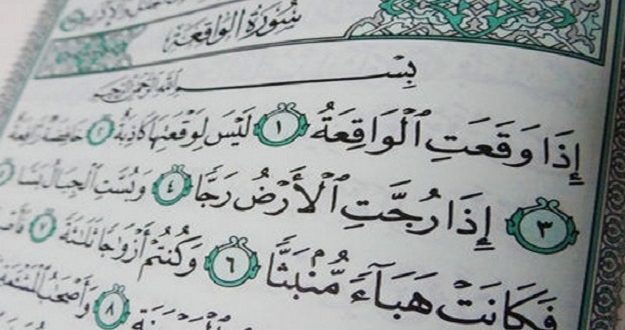 سُورَةُ الْوَاقِعَةِ
بِسْمِ ٱللَّهِ ٱلرَّحْمَٰنِ ٱلرَّحِيمِ
إِذَا وَقَعَتِ ٱلْوَاقِعَةُ ١ لَيْسَ لِوَقْعَتِهَا كَاذِبَةٌ ٢ خَافِضَةٌ رَّافِعَةٌ
٣ إِذَا رُجَّتِ ٱلْأَرْضُ رَجًّا ٤ وَبُسَّتِ ٱلْجِبَالُ بَسًّا ٥
فَكَانَتْ هَبَآءً مُّنۢبَثًّا ٦ وَكُنتُمْ أَزْوَٰجًا ثَلَٰثَةً ٧
٨ وَأَصْحَٰبُ